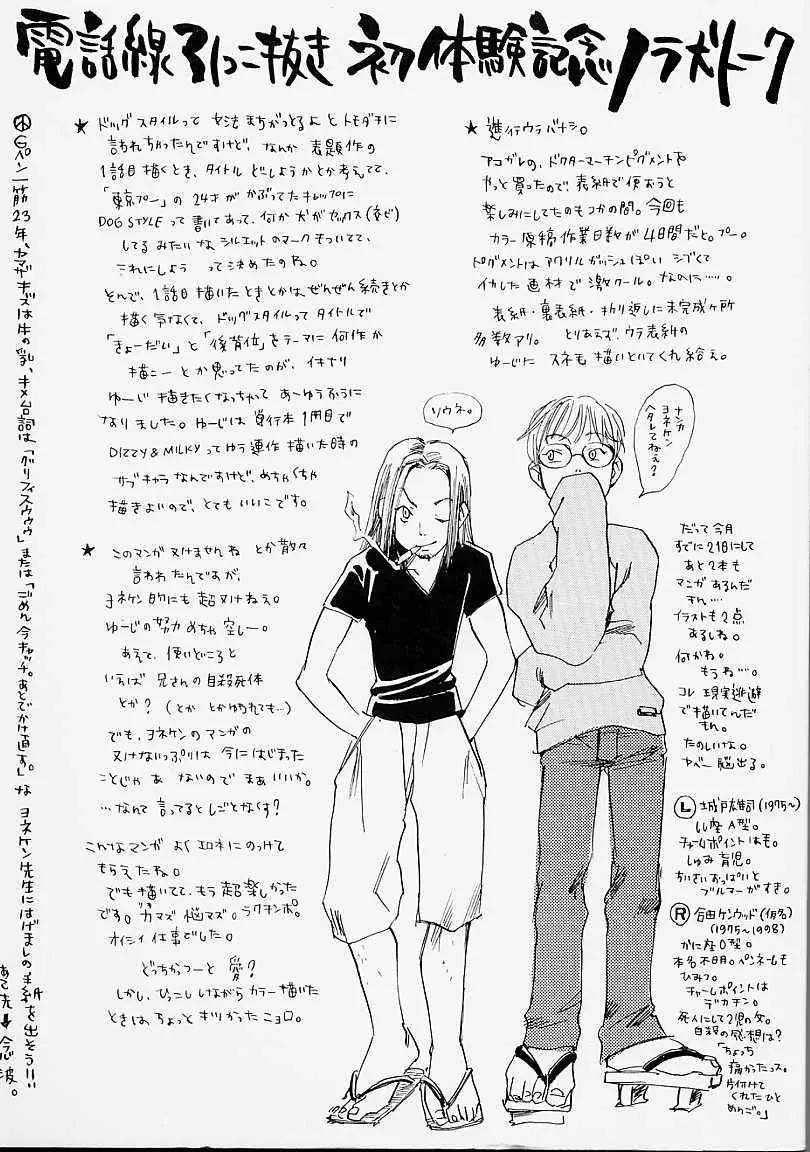 電話線引っこ抜き 初体験記念ノラ犬トーク
★ ドッグスタイルって 文法まちがっとるよ とトモダチに
言われちゃったんですけど、なんか 表題作の
1話目描くとき、タイトル どしようかとか考えてて、
「東京プー」の 24才が かぶってたキャップに
DOG STYLE って書いてあって、何か 犬がセックス(交ビ)
してる みたいな シルエットのマークもついてて、
これにしよう って決めたのね。
とんで、1話目描いたときとかは、ぜんぜん続きとか
描く気なくて、ドッグスタイルってタイトルで
「きょーだい」と「後背位」をテーマに 何作か
描こー とか思ってたのが、イキナリ
ゆーじ 描きたくなっちゃって あーゆうふうに
なりました。ゆーじは 単行本1冊目で
DIZZY & MILKY ってゆう連作 描いた時の
サブキャラなんですけど、めちゃくちゃ
描きよいので、とても いいこです。
★ このマンガ 欠けませんね とか散々
言われたんですが、
ヨネケン的にも 超 欠けねえ。
ゆーじの努力 めちゃ 空しー。
あえて、使いどころと
いえば 兄さんの自殺死体
とか? (とか とかゆわれても…)
でも、ヨネケンのマンガの
欠けないっぷりは 今にはじまった
ことじゃあ ないので まあいいか。
…なんて 言ってるとしごとなくす?
こんなマンガ よくエロネにのっけて
もらえたね。
でも描いてて、もう超楽しかった
です。ガマズ 悩マズ。ラクチンポ。
オイシイ仕事でした。
どっちかつーと 愛?
しかし、ひっこししながら カラー描いた
ときは、ちょっと キツかったニョロ。
★ 進行ウラバナシ。
アコガレの、ドクターマーチンピグメントを
やっと買ったので、表紙で使おうと
楽しみにしてたのもつかの間。今回も
カラー原稿作業日数が4日間だと。プー。
ピグメントはアクリルガッシュぽい シブくて
イカした画材で激クール。なのに……。
表紙・裏表紙・折り返しに未完成ヶ所
多数アリ。 とりあえず、ウラ表紙の
ゆーじに スネ毛描いといてくれ給え。
ソウネ。
ナンカ
ヨネケン
ヘタレてねえ?
だって今月
すでに21日にして
あと2本も
マンガあるんだ
もん……
イラストも2点
あるしね。
何かね。
もうね…。
コレ 現実逃避
で描いてんだ
もん。
たのしいな。
ヤベー 脳出る。
Ⓛ 土城戸雄司(1975~)
しし座A型。
チャームポイントはも。
しゅみ 育児。
ちいさいおっぱいと
ブルマーがすき。
Ⓡ 合田ケンウッド(仮名)
(1975~1998)
かに座O型。
本名不明。ペンネームも
ひみつ。
チャームポイントは
デカチン。
死人にして2児の父。
自殺の感想は?
「ちょっち
痛かったっス。
片付けて
くれたひと
めんご。」
Gペン一筋23年、ヤマザキズは牛の乳、キメ台詞は、「グリフィスゥゥゥ」または「ごめん今キャッチ。あとでかけ直す。」な ヨネケン先生にはげましの手紙を出そう!!!
あて先→今心波。